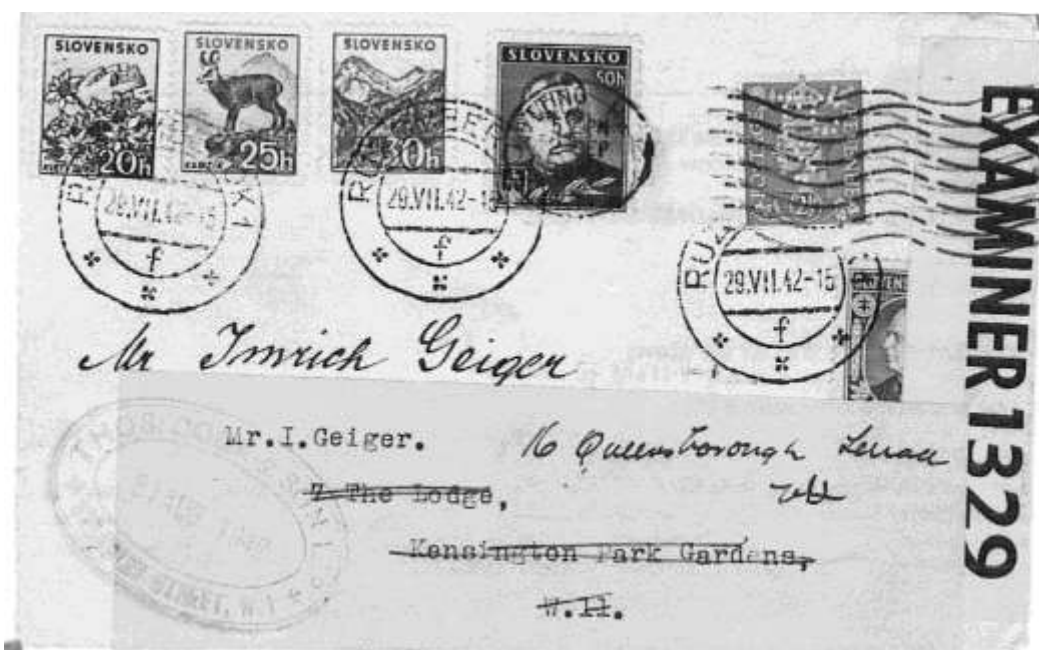 SLOVENSKO
20h
SLOVENSKO
25h
SLOVENSKO
30h
SLOVENSKO
50h
29.VII.42-15
f
29.VII.42-15
f
29.VII.42-15
f
EXAMINER 1329
Mr Imrich Geiger
Mr.I.Geiger.
16 Queensborough
7 The Lodge,
Kensington Park Gardens,
W.11.
THOS. COOK & SON LTD
STREET, W.1